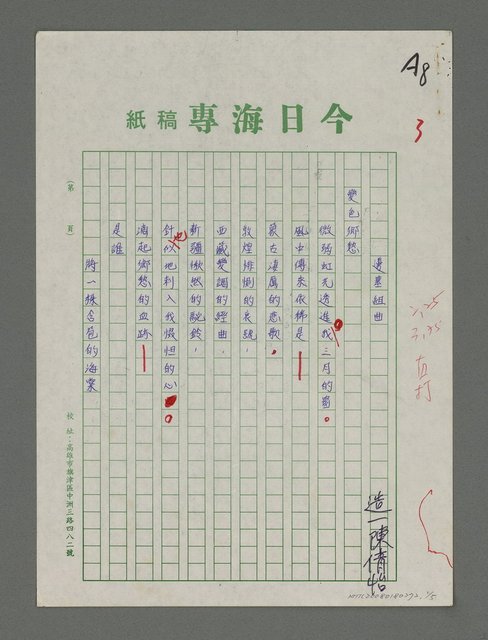 A8
3
今日海專稿紙
邊塞組曲
造一陳倩怡
變色鄉愁
微弱虹光透進我三月的窗。
風中傳來依稀是——
蒙古淒厲的悲歌。
敦煌排徊的長號,
西藏變調的經曲,
新疆愀然的駝鈴,
針似地刺入我慢怛的心。
滴起鄉愁的血跡——
是誰
將一張含苞的海棠
(第 頁)
校址:高雄市旗津區中洲三路四八二號
直打